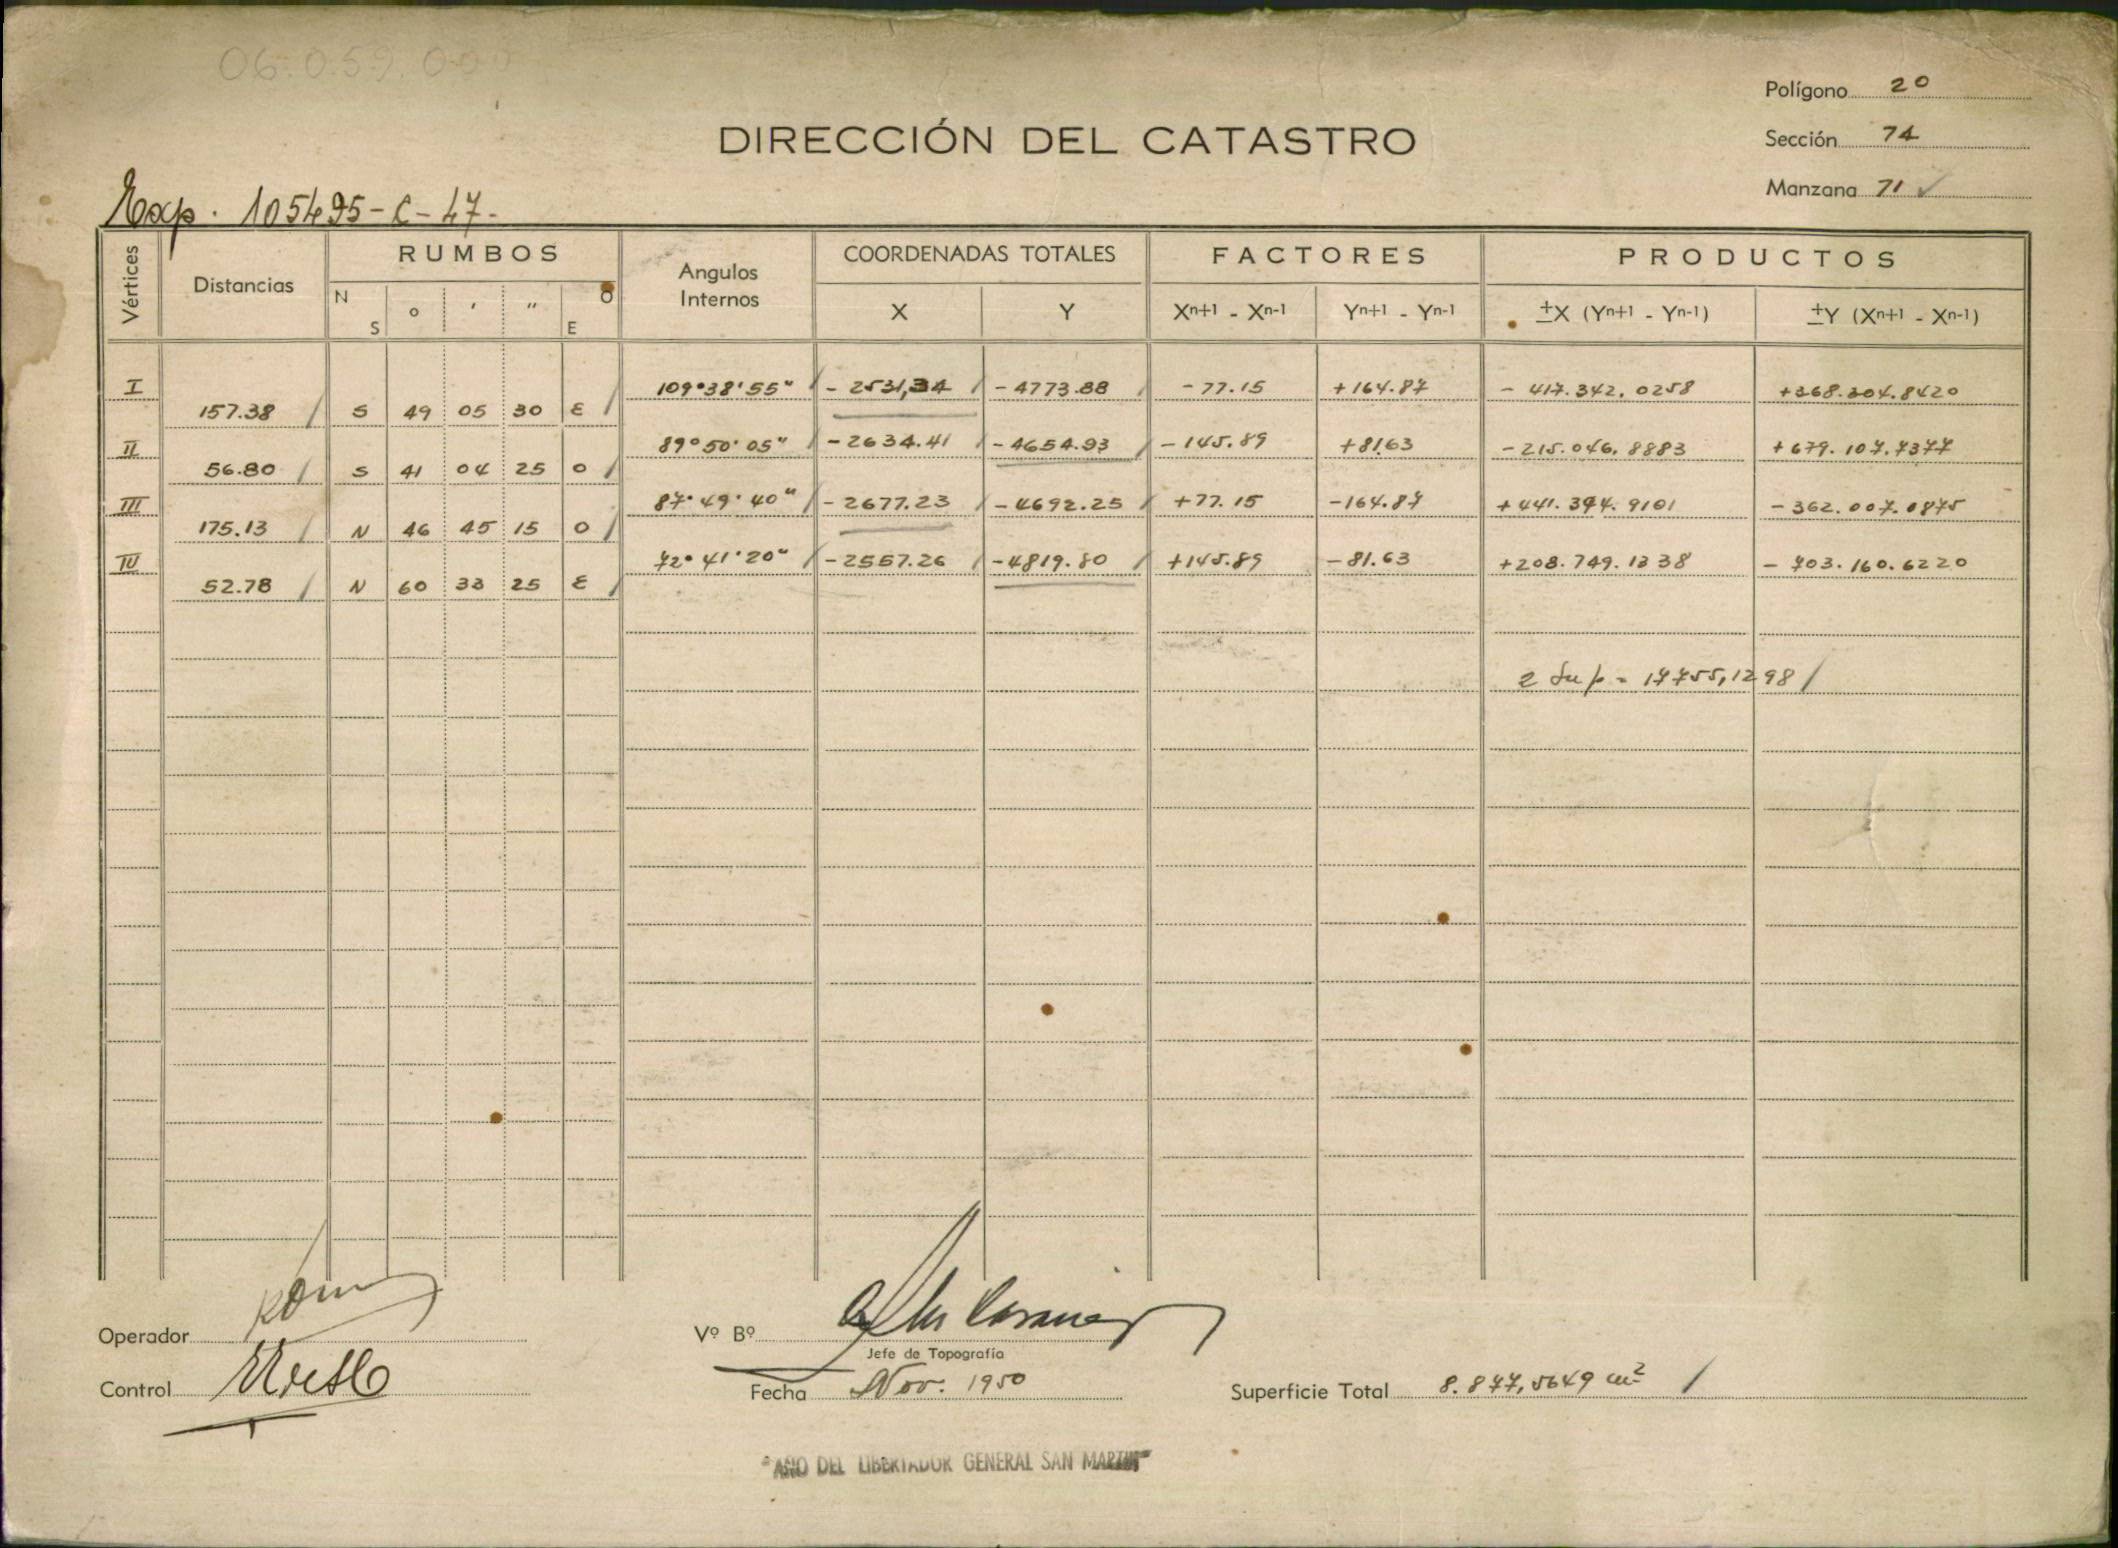 06.0.59.000
Polígono 20
DIRECCIÓN DEL CATASTRO
Sección 74
Manzana 71 ✓
Exp. 105495-C-47.
Vértices Distancias RUMBOS Angulos Internos COORDENADAS TOTALES FACTORES PRODUCTOS
N S ° ′ ″ O E X Y Xn+1 - Xn-1 Yn+1 - Yn-1 ±X (Yn+1 - Yn-1) ±Y (Xn+1 - Xn-1)
I 109°38'55" - 2531,34 - 4773.88 - 77.15 + 164.87 - 417.342,0258 + 368.304.8420
157.38 S 49 05 30 E
II 89°50'05" - 2634.41 - 4654.93 - 145.89 + 81.63 - 215.046,8883 + 679.107.7377
56.80 S 41 04 25 O
III 87°49'40" - 2677.23 - 4692.25 + 77.15 - 164.87 + 441.394.9101 - 362.007.0875
175.13 N 46 45 15 O
IV 72°41'20" - 2557.26 - 4819.80 + 145.89 - 81.63 + 208.749.1338 - 703.160.6220
52.78 N 60 33 25 E
2 Sup = 17755,1298
Operador
Vº Bº
Jefe de Topografía
Control
Fecha Nov. 1950
Superficie Total 8.877,5649 m²
"AÑO DEL LIBERTADOR GENERAL SAN MARTIN"